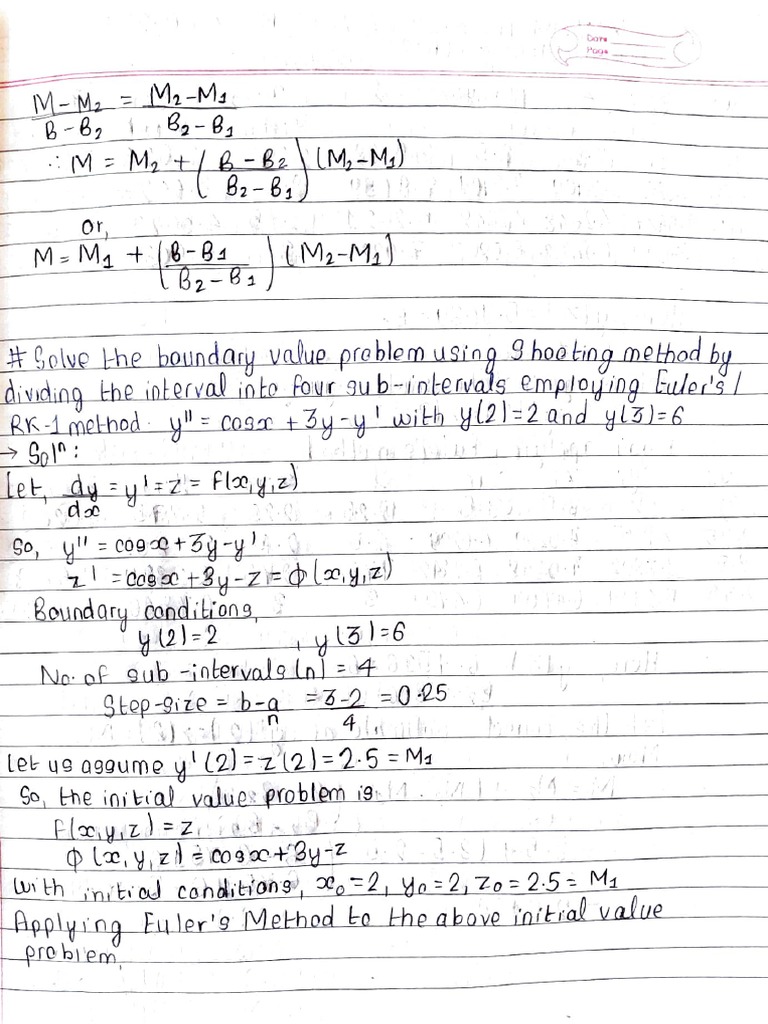 Date
Page
M-M₂ = M₂-M₁
B-B₂   B₂-B₁
∴ M = M₂ + (B-B₂) (M₂-M₁)
(B₂-B₁)
or,
M = M₁ + (B-B₁) (M₂-M₁)
(B₂-B₁)
# Solve the boundary value problem using Shooting method by
dividing the interval into four sub-intervals employing Euler's /
RK-1 method. y'' = cosx + 3y - y' with y(2)=2 and y(3)=6
→ Solⁿ:
Let, dy = y' = z = f(x,y,z)
dx
So, y'' = cosx + 3y - y'
z' = cosx + 3y - z = φ(x,y,z)
Boundary conditions,
y(2)=2 , y(3)=6
No. of sub-intervals (n) = 4
Step-size = b-a = 3-2 = 0.25
n   4
Let us assume y'(2) = z(2) = 2.5 = M₁
So, the initial value problem is
f(x,y,z) = z
φ(x,y,z) = cosx + 3y - z
with initial conditions, x₀=2, y₀=2, z₀=2.5 = M₁
Applying Euler's Method to the above initial value
problem,